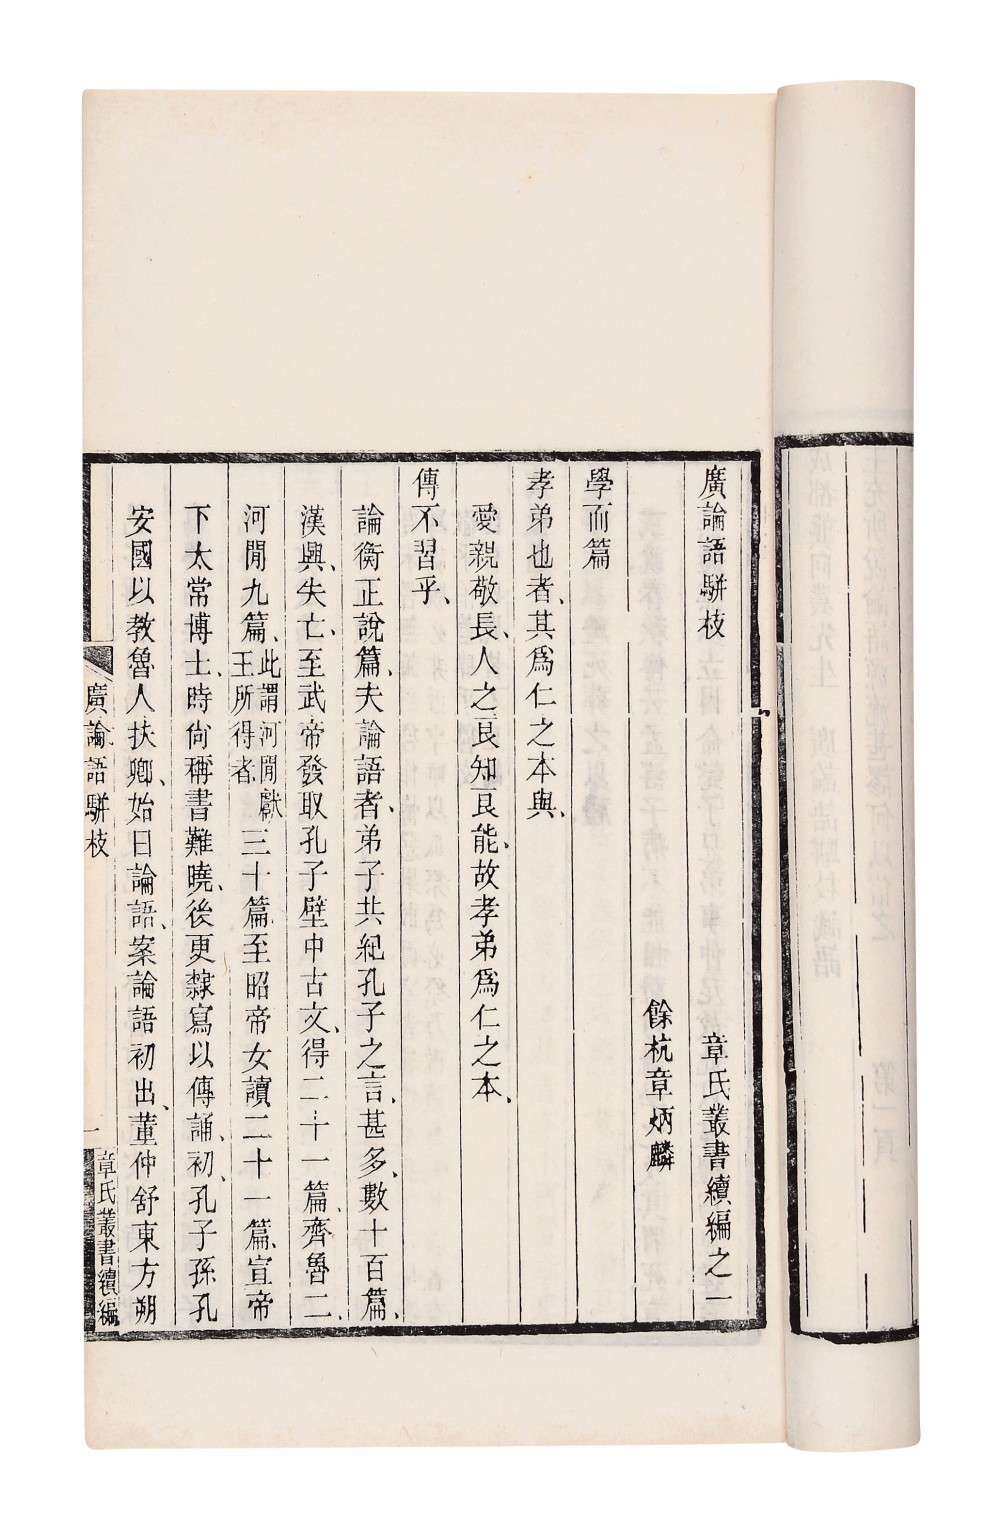 廣論語駢枝 章氏叢書續編之一
餘杭章炳麟
學而篇
孝弟也者、其爲仁之本與、
愛親敬長、人之良知良能、故孝弟爲仁之本、
傳不習乎、
論衡正說篇、夫論語者、弟子共紀孔子之言、甚多、數十百篇、
漢興、失亡、至武帝發取孔子壁中古文、得二十一篇、齊魯二、
河閒九篇、此謂河閒獻王所得者三十篇、至昭帝女讀二十一篇、宣帝
下太常博士、時尙稱書難曉、後更隸寫以傳誦、初、孔子孫孔
安國以教魯人扶卿、始曰論語、案論語初出、董仲舒東方朔
廣論語駢枝
一
章氏叢書續編